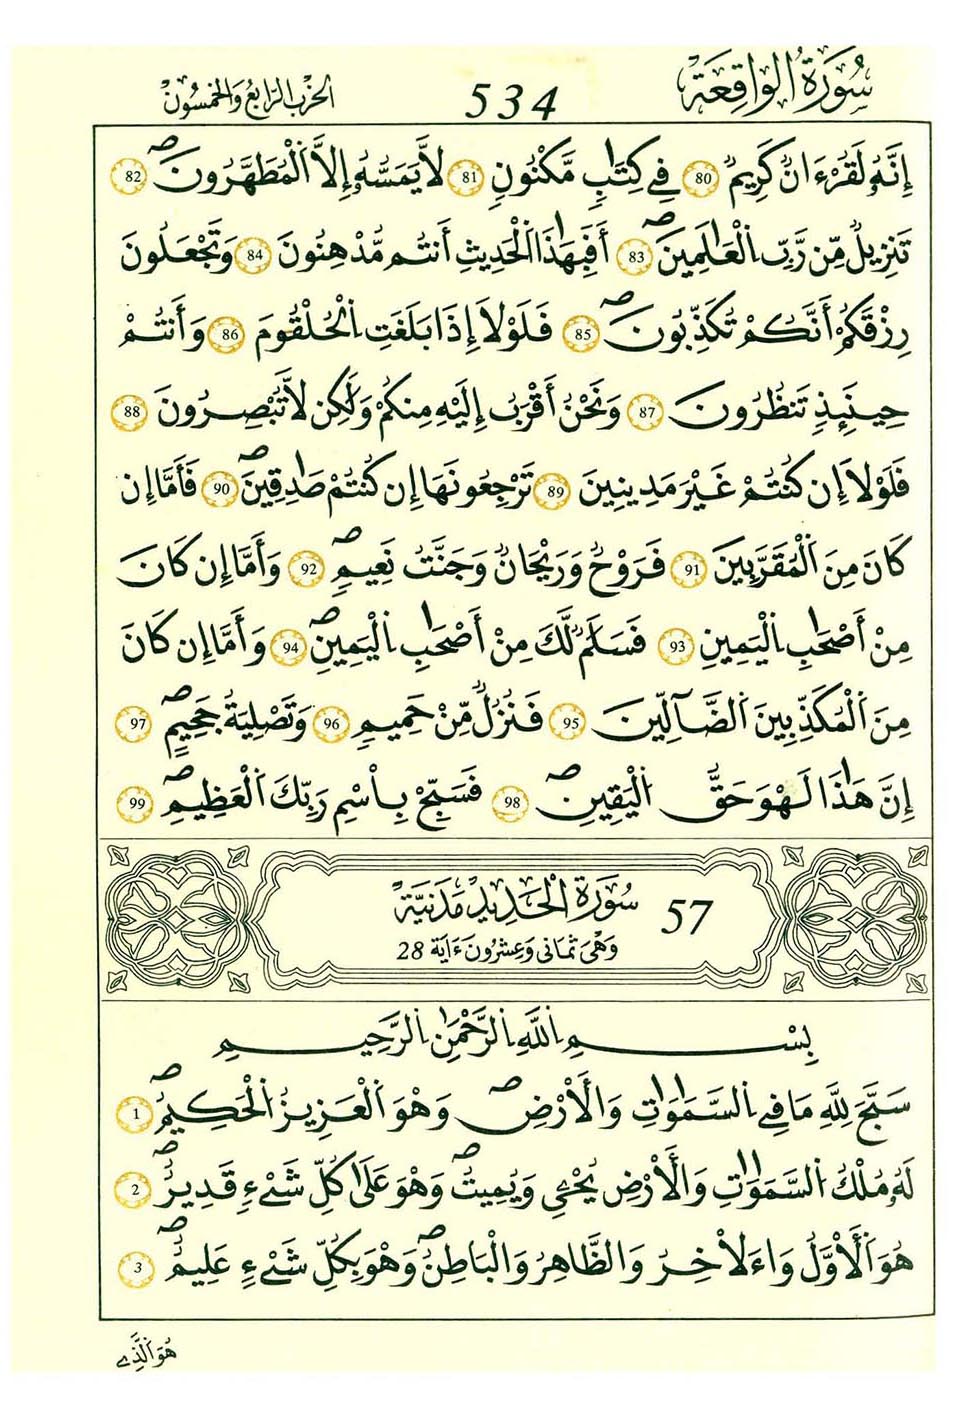 سُورَةُ الْوَاقِعَةِ 534 الحِزْبُ الرَّابِعُ وَالْخَمْسُون
إِنَّهُۥ لَقُرْءَانٌ كَرِيمٌ 80 فِے كِتَٰبٍ مَّكْنُونٍ 81 لَّا يَمَسُّهُۥٓ إِلَّا اَ۬لْمُطَهَّرُونَۖ 82
تَنزِيلٌ مِّن رَّبِّ اِ۬لْعَٰلَمِينَۖ 83 أَفَبِهَٰذَا اَ۬لْحَدِيثِ أَنتُم مُّدْهِنُونَ 84 وَتَجْعَلُونَ
رِزْقَكُمُۥٓ أَنَّكُمْ تُكَذِّبُونَۖ 85 فَلَوْلَآ إِذَا بَلَغَتِ اِ۬لْحُلْقُومَ 86 وَأَنتُمْ
حِينَئِذٍ تَنظُرُونَ 87 وَنَحْنُ أَقْرَبُ إِلَيْهِ مِنكُمْ وَلَٰكِن لَّا تُبْصِرُونَ 88
فَلَوْلَآ إِن كُنتُمْ غَيْرَ مَدِينِينَ 89 تَرْجِعُونَهَآ إِن كُنتُمْ صَٰدِقِينَۖ 90 فَأَمَّآ إِن
كَانَ مِنَ اَ۬لْمُقَرَّبِينَ 91 فَرَوْحٌ وَرَيْحَانٌ وَجَنَّتُ نَعِيمٍۖ 92 وَأَمَّآ إِن كَانَ
مِنْ أَصْحَٰبِ اِ۬لْيَمِينِ 93 فَسَلَٰمٌ لَّكَ مِنْ أَصْحَٰبِ اِ۬لْيَمِينِۖ 94 وَأَمَّآ إِن كَانَ
مِنَ اَ۬لْمُكَذِّبِينَ اَ۬لضَّآلِّينَ 95 فَنُزُلٌ مِّنْ حَمِيمٍ 96 وَتَصْلِيَةُ جَحِيمٍۖ 97
إِنَّ هَٰذَا لَهُوَ حَقُّ اُ۬لْيَقِينِۖ 98 فَسَبِّحْ بِاسْمِ رَبِّكَ اَ۬لْعَظِيمِۖ 99
57 سُورَةُ الْحَدِيدِ مَدَنِيَّة
وَهْيَ ثَمَانِي وَعِشْرُونَ ءَايَة 28
بِسْمِ اِ۬للَّهِ اِ۬لرَّحْمَٰنِ اِ۬لرَّحِيمِ
سَبَّحَ لِلهِ مَا فِے اِ۬لسَّمَٰوَٰتِ وَالْأَرْضِۖ وَهْوَ اَ۬لْعَزِيزُ اُ۬لْحَكِيمُۖ 1
لَهُۥ مُلْكُ اُ۬لسَّمَٰوَٰتِ وَالْأَرْضِ يُحْيِۦ وَيُمِيتُۖ وَهْوَ عَلَىٰ كُلِّ شَےْءٍ قَدِيرٌۖ 2
هُوَ اَ۬لْأَوَّلُ وَالْأٓخِرُ وَالظَّٰهِرُ وَالْبَاطِنُۖ وَهْوَ بِكُلِّ شَےْءٍ عَلِيمٌۖ 3
هُوَ اَ۬لَّذِے